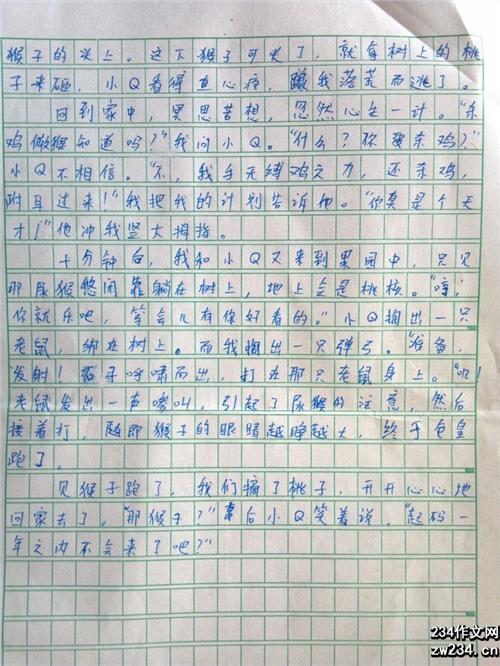 猴子的头上。这下猴子可火了，就拿树上的桃
子来砸，小Q看得直心疼，跟我落荒而逃了。
回到家中，冥思苦想，忽然心生一计。“杀
鸡儆猴知道吗？”我问小Q。“什么？你要杀鸡？”
小Q不相信。“不，我手无缚鸡之力，还杀鸡，
附耳过来！”我把我的计划告诉他。“你真是个天
才！”他冲我竖大拇指。
十分钟后，我和小Q又来到果园中，只见
那尿猴悠闲靠躺在树上，地上全是桃核。“哼！
你就乐吧，等会儿有你好看的。”小Q掏出一只
老鼠，绑在树上。而我掏出一只弹弓。“准备，
发射！石子呼啸而出，打在那只老鼠身上。“叽！
老鼠发出一声嘶叫，引起了尿猴的注意，然后
接着打，随即猴子的眼睛越睁越大，终于仓皇
跑了。
见猴子跑了，我们摘了桃子，开开心心地
回家去了。“那猴子？”事后小Q笑着说，“起码一
年之内不会来了吧？”
234作文网
zw234.cn